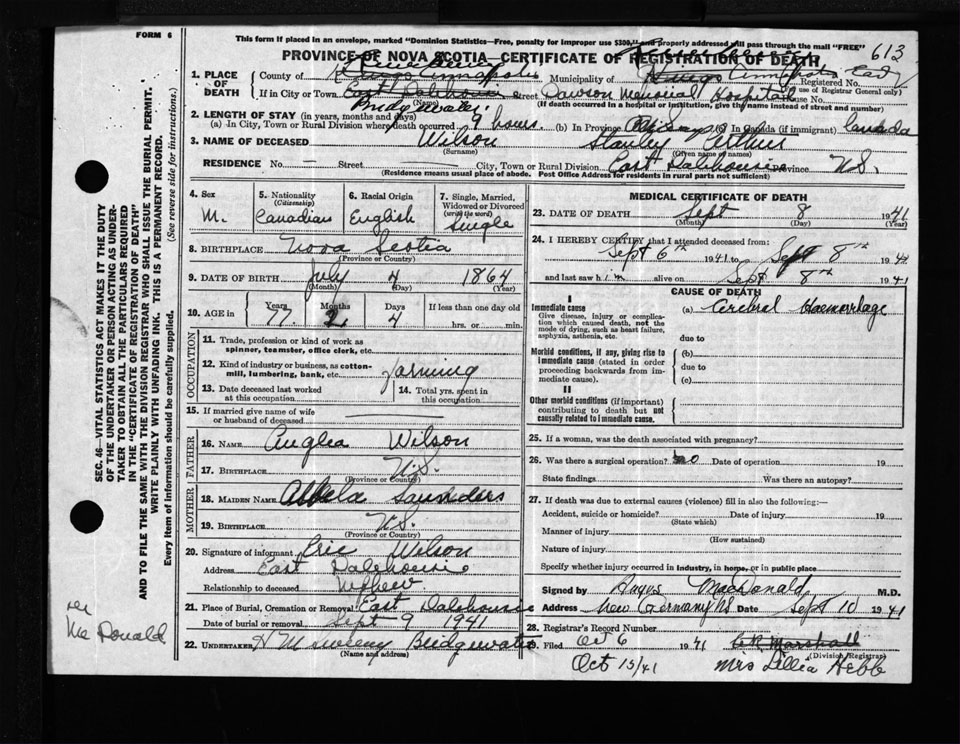 FORM 6
This form if placed in an envelope, marked "Dominion Statistics—Free, penalty for improper use $300," and properly addressed will pass through the mail "FREE"
PROVINCE OF NOVA SCOTIA—CERTIFICATE OF REGISTRATION OF DEATH
613
1. PLACE OF DEATH
County of Kings Annapolis Municipality of Kings Annapolis Registered No.
If in City or Town East Dalhousie Street Dawson Memorial Hospital House No. (For use of Registrar General only)
Bridgewater. (Name) (If death occurred in a hospital or institution, give the name instead of street and number)
2. LENGTH OF STAY (in years, months and days)
(a) In City, Town or Rural Division where death occurred 9 hours. (b) In Province (c) In Canada (if immigrant) Canada
3. NAME OF DECEASED Wilson Stanley Arthur
(Surname) (Given name or names)
RESIDENCE No. — Street City, Town or Rural Division East Dalhousie Province N.S.
(Residence means usual place of abode. Post Office Address for residents in rural parts not sufficient)
4. Sex M.
5. Nationality (Citizenship) Canadian
6. Racial Origin English
7. Single, Married, Widowed or Divorced (write the word) Single
8. BIRTHPLACE Nova Scotia
(Province or Country)
9. DATE OF BIRTH July 4 1864
(Month) (Day) (Year)
10. AGE in Years 77 Months 2 Days 4 If less than one day old hrs. or min.
OCCUPATION
11. Trade, profession or kind of work as spinner, teamster, office clerk, etc.
12. Kind of industry or business, as cotton-mill, lumbering, bank, etc. farming
13. Date deceased last worked at this occupation
14. Total yrs. spent in this occupation
15. If married give name of wife or husband of deceased
FATHER
16. NAME Wilson
17. BIRTHPLACE N.S.
(Province or Country)
MOTHER
18. MAIDEN NAME Saunders
19. BIRTHPLACE N.S.
(Province or Country)
20. Signature of informant Eric Wilson
Address East Dalhousie
Relationship to deceased Nephew
21. Place of Burial, Cremation or Removal East Dalhousie
Date of burial or removal Sept 9 1941
22. UNDERTAKER Bridgewater
(Name and address)
MEDICAL CERTIFICATE OF DEATH
23. DATE OF DEATH Sept 8 1941
(Month) (Day) (Year)
24. I HEREBY CERTIFY that I attended deceased from:
Sept 6th 1941 to Sept 8th 1941
and last saw him alive on Sept 8th 1941
CAUSE OF DEATH
I
Immediate cause
Give disease, injury or complication which caused death, not the mode of dying, such as heart failure, asphyxia, asthenia, etc.
(a) Cerebral Haemorrhage
due to
Morbid conditions, if any, giving rise to immediate cause (stated in order proceeding backwards from immediate cause).
(b)
due to
(c)
II
Other morbid conditions (if important) contributing to death but not causally related to immediate cause.
25. If a woman, was the death associated with pregnancy?
26. Was there a surgical operation? no Date of operation 19
State findings Was there an autopsy?
27. If death was due to external causes (violence) fill in also the following:—
Accident, suicide or homicide? Date of injury 19
(State which)
Manner of injury
(How sustained)
Nature of injury
Specify whether injury occurred in industry, in home, or in public place
Signed by Angus MacDonald M.D.
Address New Germany NS Date Sept 10 1941
28. Registrar's Record Number
29. Filed Oct 6 1941 Marshall
(Division Registrar)
Oct 15/41 Mrs Lillia Hebb
SEC. 46—VITAL STATISTICS ACT MAKES IT THE DUTY
OF THE UNDERTAKER OR PERSON ACTING AS UNDER-
TAKER TO OBTAIN ALL THE PARTICULARS REQUIRED
IN THE "CERTIFICATE OF REGISTRATION OF DEATH"
AND TO FILE THE SAME WITH THE DIVISION REGISTRAR WHO SHALL ISSUE THE BURIAL PERMIT.
WRITE PLAINLY WITH UNFADING INK. THIS IS A PERMANENT RECORD.
Every item of information should be carefully supplied. (See reverse side for instructions.)
McDonald